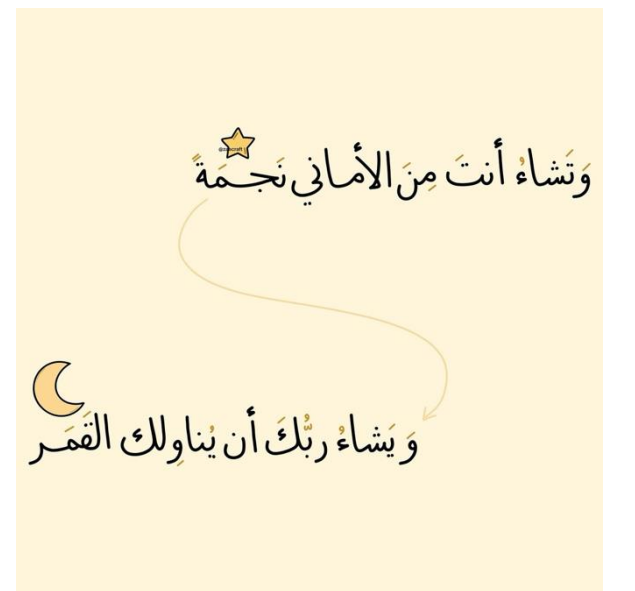 وَتَشاءُ أنتَ مِنَ الأماني نَجـمَةً
وَ يَشاءُ ربُّكَ أن يُناوِلك القَمَـر